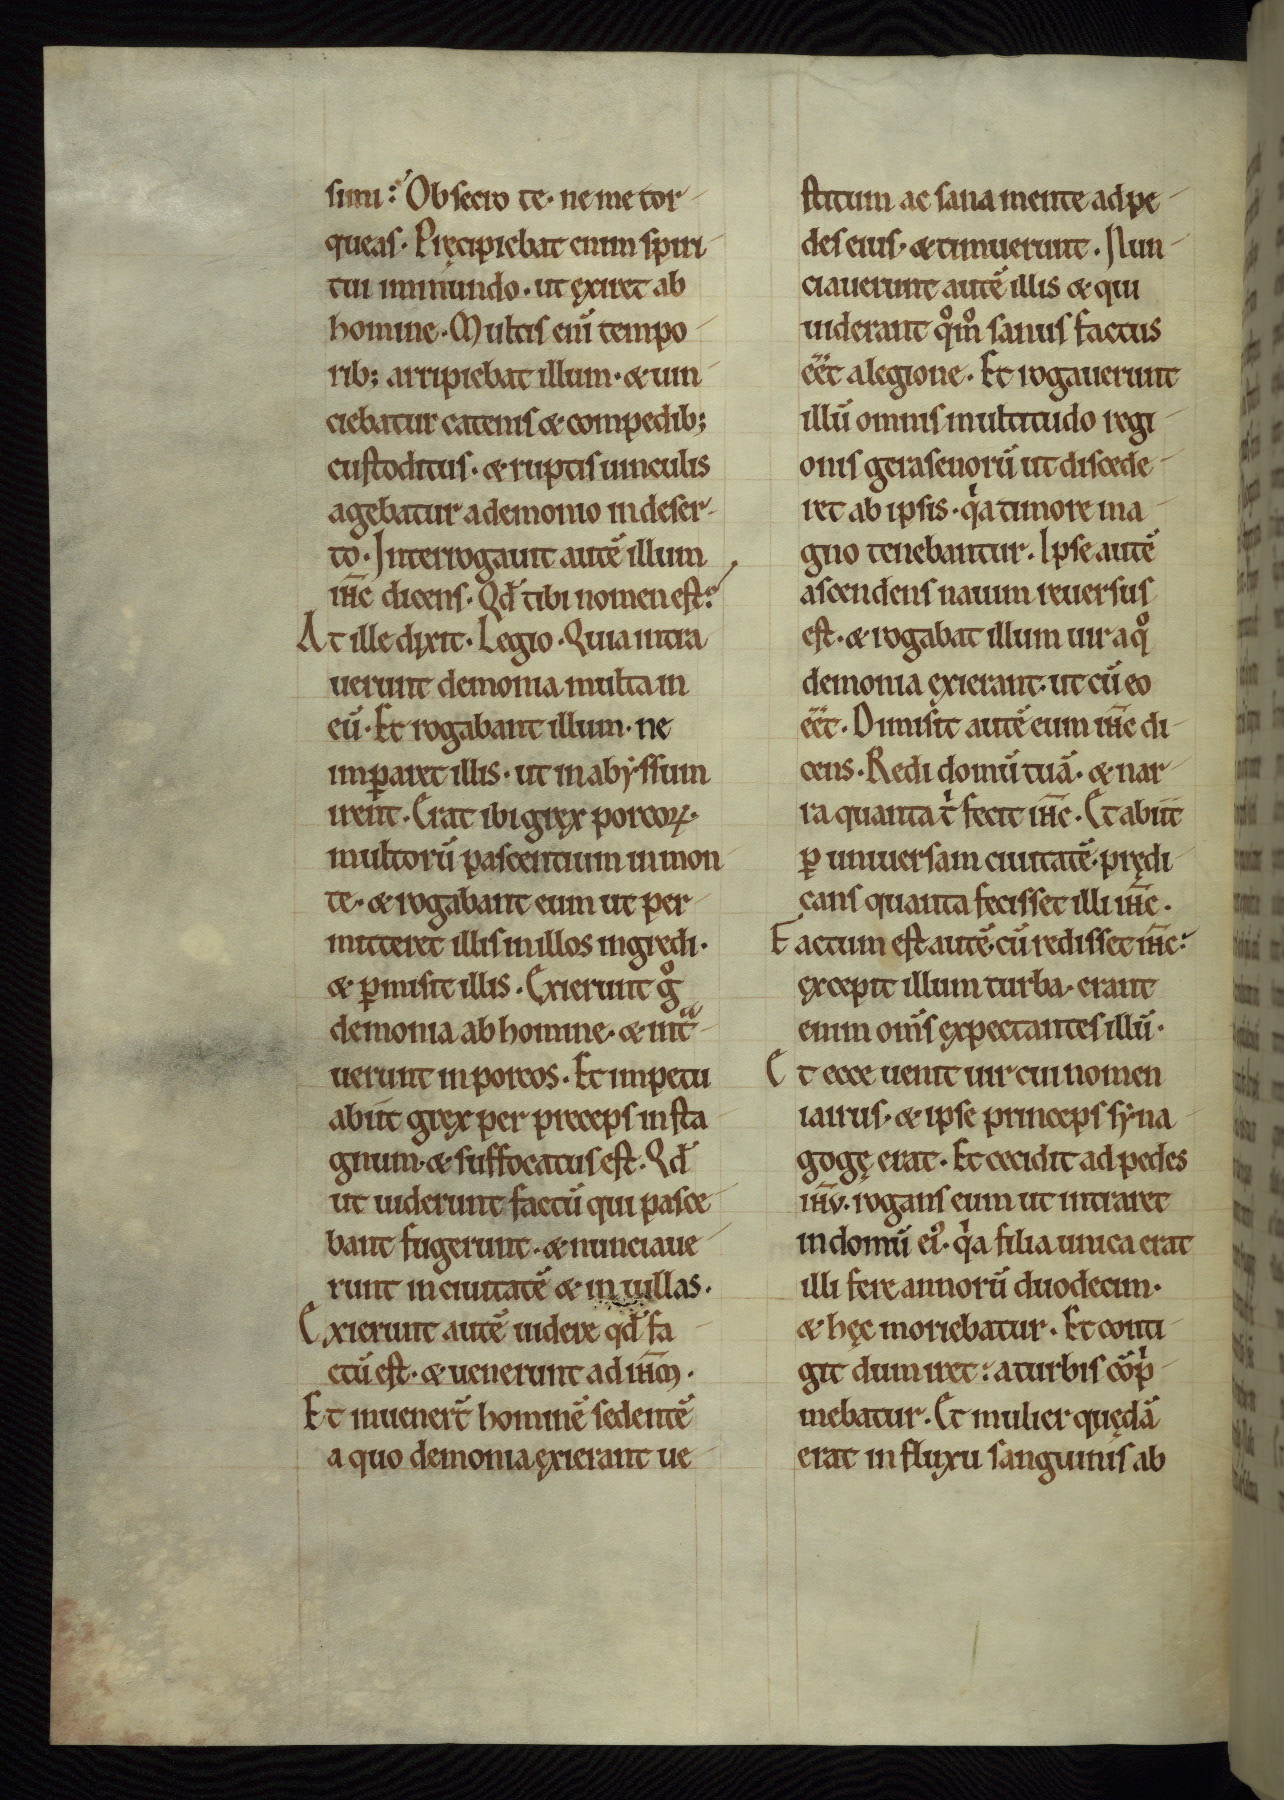 simi: Obsecro te· ne me tor
queas· Pręcipiebat enim spiri
tui inmundo· ut ęxiret ab
homine· Multis eni̅ tempo
rib; arripiebat illum· & uin
ciebatur catenis & compedib;
custoditus· & ruptis uinculis
agebatur a demonio in deser
to· Interrogauit aute̅ illum
ih̅c dicens· Qd̅ tibi nomen est?
At ille dixit· Legio· Quia intra
uerunt demonia multa in
eu̅· Et rogabant illum· ne
imꝑaret illis· ut in abyssum
irent· Erat ibi gręx porcoꝝ·
multoru̅ pascentium in mon
te· & rogabant eum ut per
mitteret illis in illos ingredi·
& ꝑmisit illis· Exierunt gͦ
demonia ab homine· & intͣ
uerunt in porcos· Et impetu
abiit gręx per pręceps in sta
gnum· & suffocatus est· Qd̅
ut uiderunt factu̅ qui pasce
bant fugerunt· & nunciaue
runt in ciuitate̅ & in uillas·
Exierunt aute̅ uidere qd̅ fa
ctu̅ est· & uenerunt ad ih̅m·
Et inuener̅t homine̅ sedente̅
a quo demonia ęxierant ue
stitum ac sana mente ad pe
des eius· & timuerunt· Nun
ciauerunt aute̅ illis & qui
uiderant qͦm̅ sanus factus
ee̅t a legione· Et rogauerunt
illu̅ omnis multitudo regi
onis gerasenoru̅ ut discede
ret ab ipsis· qͥa timore ma
gno tenebantur· Ipse aute̅
ascendens nauim reuersus
est· & rogabat illum uir a qͦ
demonia ęxierant· ut cu̅ eo
ee̅t· Dimisit aute̅ eum ih̅c di
cens· Redi domu̅ tua̅· & nar
ra quanta tͥ fecit ih̅c· Et abiit
ꝑ uniuersam ciuitate̅· prędi
cans quanta fecisset illi ih̅c·
Factum est aute̅· cu̅ redisset ih̅c:
ęxcepit illum turba· erant
enim om̅s ęxpectantes illu̅·
Et ecce uenit uir cui nomen
iairus· & ipse princeps syna
gogę erat· Et cecidit ad pedes
ih̅u· rogans eum ut intraret
in domu̅ ei᾽· qͥa filia unica erat
illi fere annoru̅ duodecim·
& hęc moriebatur· Et conti
git dum iret: a turbis co̅pͥ
mebatur· Et mulier quęda̅
erat in fluxu sanguinis ab